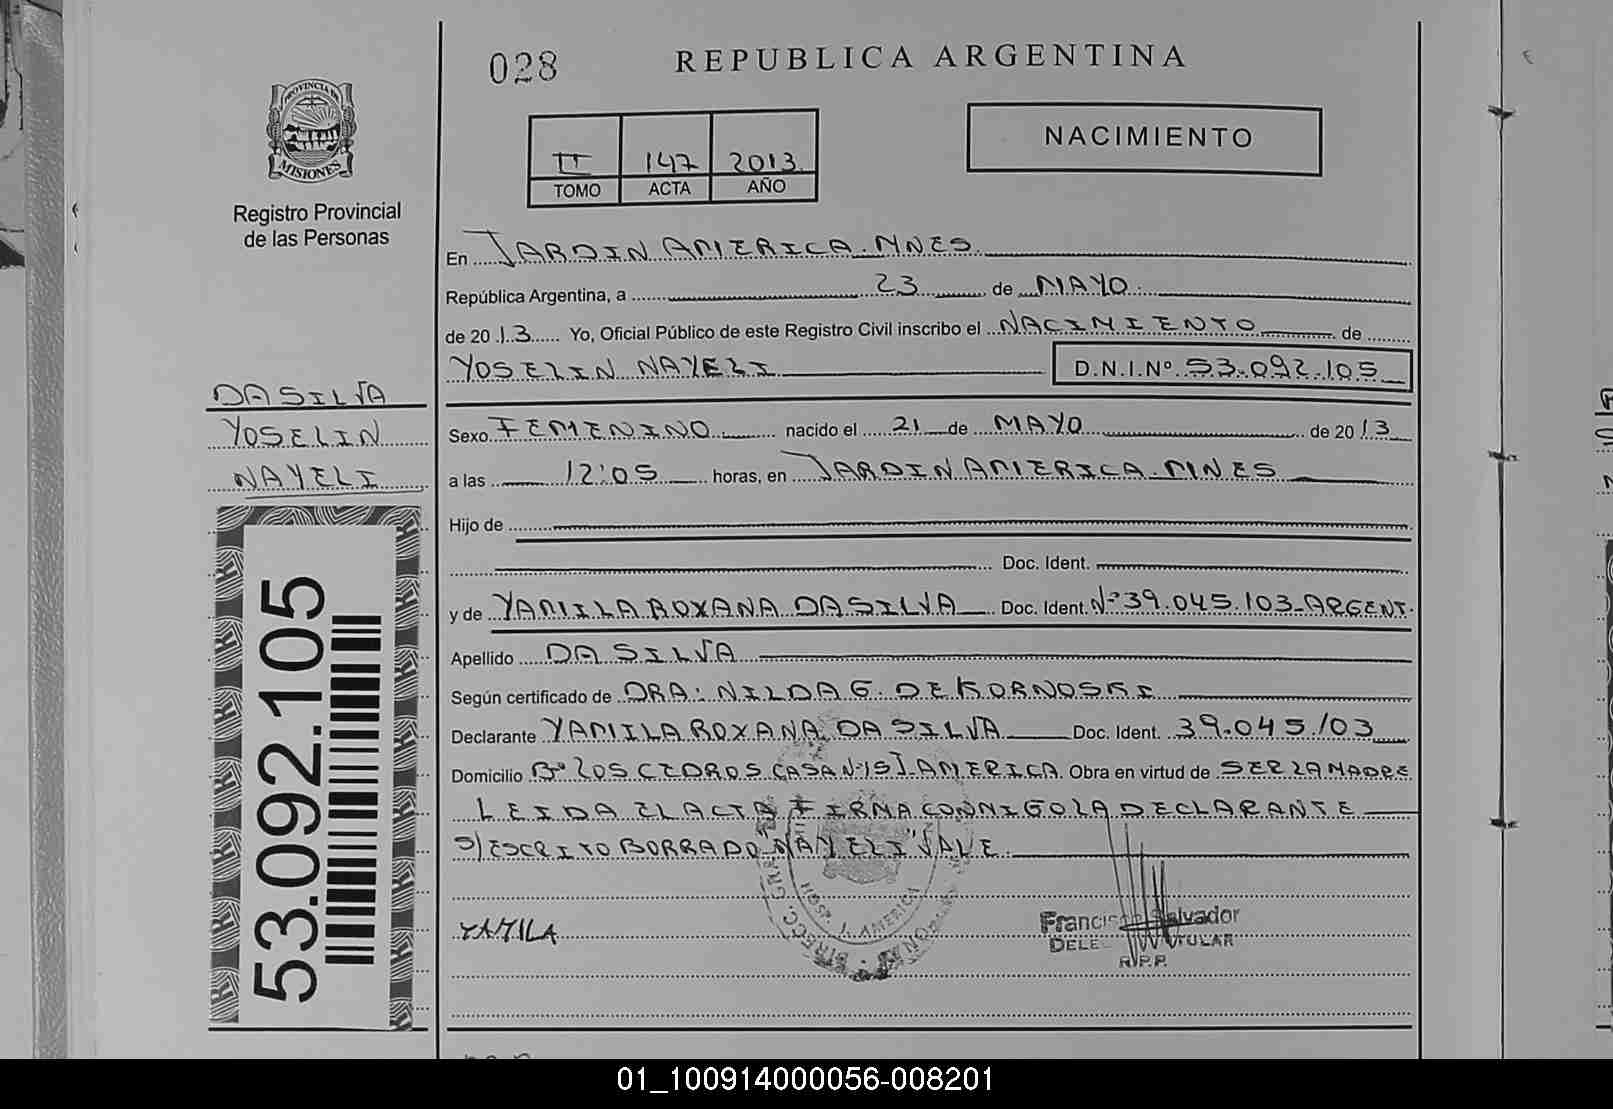 028
REPUBLICA ARGENTINA
PROVINCIA DE
MISIONES
Registro Provincial
de las Personas
II 147 2013
TOMO ACTA AÑO
NACIMIENTO
En JARDIN AMERICA. MNES
República Argentina, a 23 de MAYO
de 2013 Yo, Oficial Público de este Registro Civil inscribo el NACIMIENTO de
YOSELIN NAYELI D.N.I.Nº 53.092.105
DA SILVA
YOSELIN
NAYELI
Sexo FEMENINO nacido el 21 de MAYO de 2013
a las 12:05 horas, en JARDIN AMERICA. MNES
Hijo de
Doc. Ident.
y de YAMILA ROXANA DA SILVA Doc. Ident. Nº 39.045.103-ARGENT.
Apellido DA SILVA
Según certificado de DRA: NILDA G. DE KORNOSKI
Declarante YAMILA ROXANA DA SILVA Doc. Ident. 39.045.103
Domicilio Bº LOS CEDROS CASA Nº 151 J. AMERICA. Obra en virtud de SER LA MADRE
LEIDA EL ACTA FIRMA CONMIGO LA DECLARANTE
S/ESCRITO BORRADO "NAYELI" VALE.
YAMILA
Francisco Salvador
TULAR
R.P.P.
HOSP. J. AMERICA
53.092.105
01_100914000056-008201